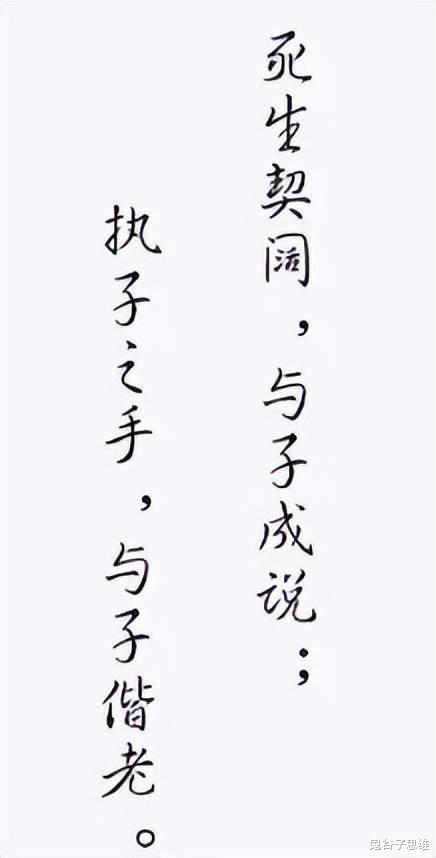 死生契阔，与子成说；
执子之手，与子偕老。
鬼谷子思维